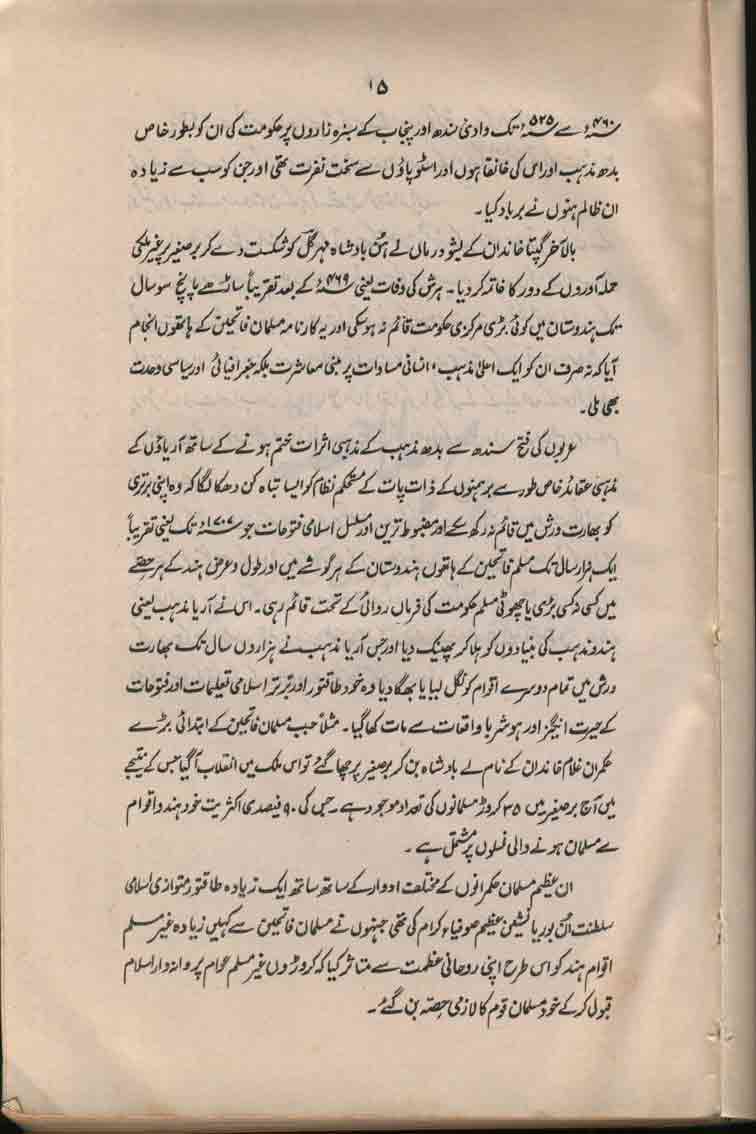 ۱۵
۴۶۰ء سے ۵۲۵ء تک وادئ سندھ اور پنجاب کے سبزہ زاروں پر حکومت کی ان کو بطور خاص
بدھ مذہب اور اس کی خانقاہوں اور اسٹوپاؤں سے سخت نفرت تھی اور جن کو سب سے زیادہ
ان ظالم ہنوں نے برباد کیا۔
بالآخر گپتا خاندان کے لیشو درمان نے ہُن بادشاہ مہر گل کو شکست دے کر برصغیر پر غیر ملکی
حملہ آوروں کے دور کا خاتمہ کر دیا۔ ہرش کی وفات یعنی ۴۶۹ء کے بعد تقریباً ساڑھے پانچ سو سال
تک ہندوستان میں کوئی بڑی مرکزی حکومت قائم نہ ہوسکی اور یہ کارنامہ مسلمان فاتحین کے ہاتھوں انجام
آیا کہ نہ صرف ان کو ایک اعلیٰ مذہب، انسانی مساوات پر مبنی معاشرت بلکہ جغرافیائی اور سیاسی وحدت
بھی ملی۔
عربوں کی فتح سندھ سے بدھ مذہب کے مذہبی اثرات ختم ہونے کے ساتھ آریاؤں کے
مذہبی عقائد خاص طور سے برہمنوں کے ذات پات کے مستحکم نظام کو ایسا تباہ کن دھکا لگا کہ وہ اپنی برتری
کو بھارت ورش میں قائم نہ رکھ سکے اور مضبوط ترین اور مسلسل اسلامی فتوحات جو ۱۷۰۷ء تک یعنی تقریباً
ایک ہزار سال تک مسلم فاتحین کے ہاتھوں ہندوستان کے ہر گوشے میں اور طول و عرض ہند کے ہر حصّے
میں کسی نہ کسی بڑی یا چھوٹی مسلم حکومت کی فرماں روائی کے تحت قائم رہی۔ اس نے آریا مذہب یعنی
ہندو مذہب کی بنیادوں کو ہلا کر پھینک دیا اور جس آریا مذہب نے ہزاروں سال تک بھارت
ورش میں تمام دوسرے اقوام کو نگل لیا یا بھگا دیا وہ خود طاقتور اور برتر اسلامی تعلیمات اور فتوحات
کے حیرت انگیز اور ہوشربا واقعات سے مات کھا گیا۔ مثلاً جب مسلمان فاتحین کے ابتدائی بڑے
حکمران غلام خاندان کے نام سے بادشاہ بن کر برصغیر پر چھا گئے تو اس ملک میں انقلاب آگیا جس کے نتیجے
میں آج برصغیر میں ۳۵ کروڑ مسلمانوں کی تعداد موجود ہے۔ جس کی ۹۰ فیصدی اکثریت خود ہندو اقوام
سے مسلمان ہونے والی نسلوں پر مشتمل ہے۔
ان عظیم مسلمان حکمرانوں کے مختلف ادوار کے ساتھ ساتھ ایک زیادہ طاقتور متوازی اسلامی
سلطنت اُن بوریا نشین عظیم صوفیاء کرام کی تھی جنہوں نے مسلمان فاتحین سے کہیں زیادہ غیر مسلم
اقوام ہند کو اس طرح اپنی روحانی عظمت سے متاثر کیا کہ کروڑوں غیر مسلم عوام پروانہ وار اسلام
قبول کرکے خود مسلمان قوم کا لازمی حِصّہ بن گئے۔